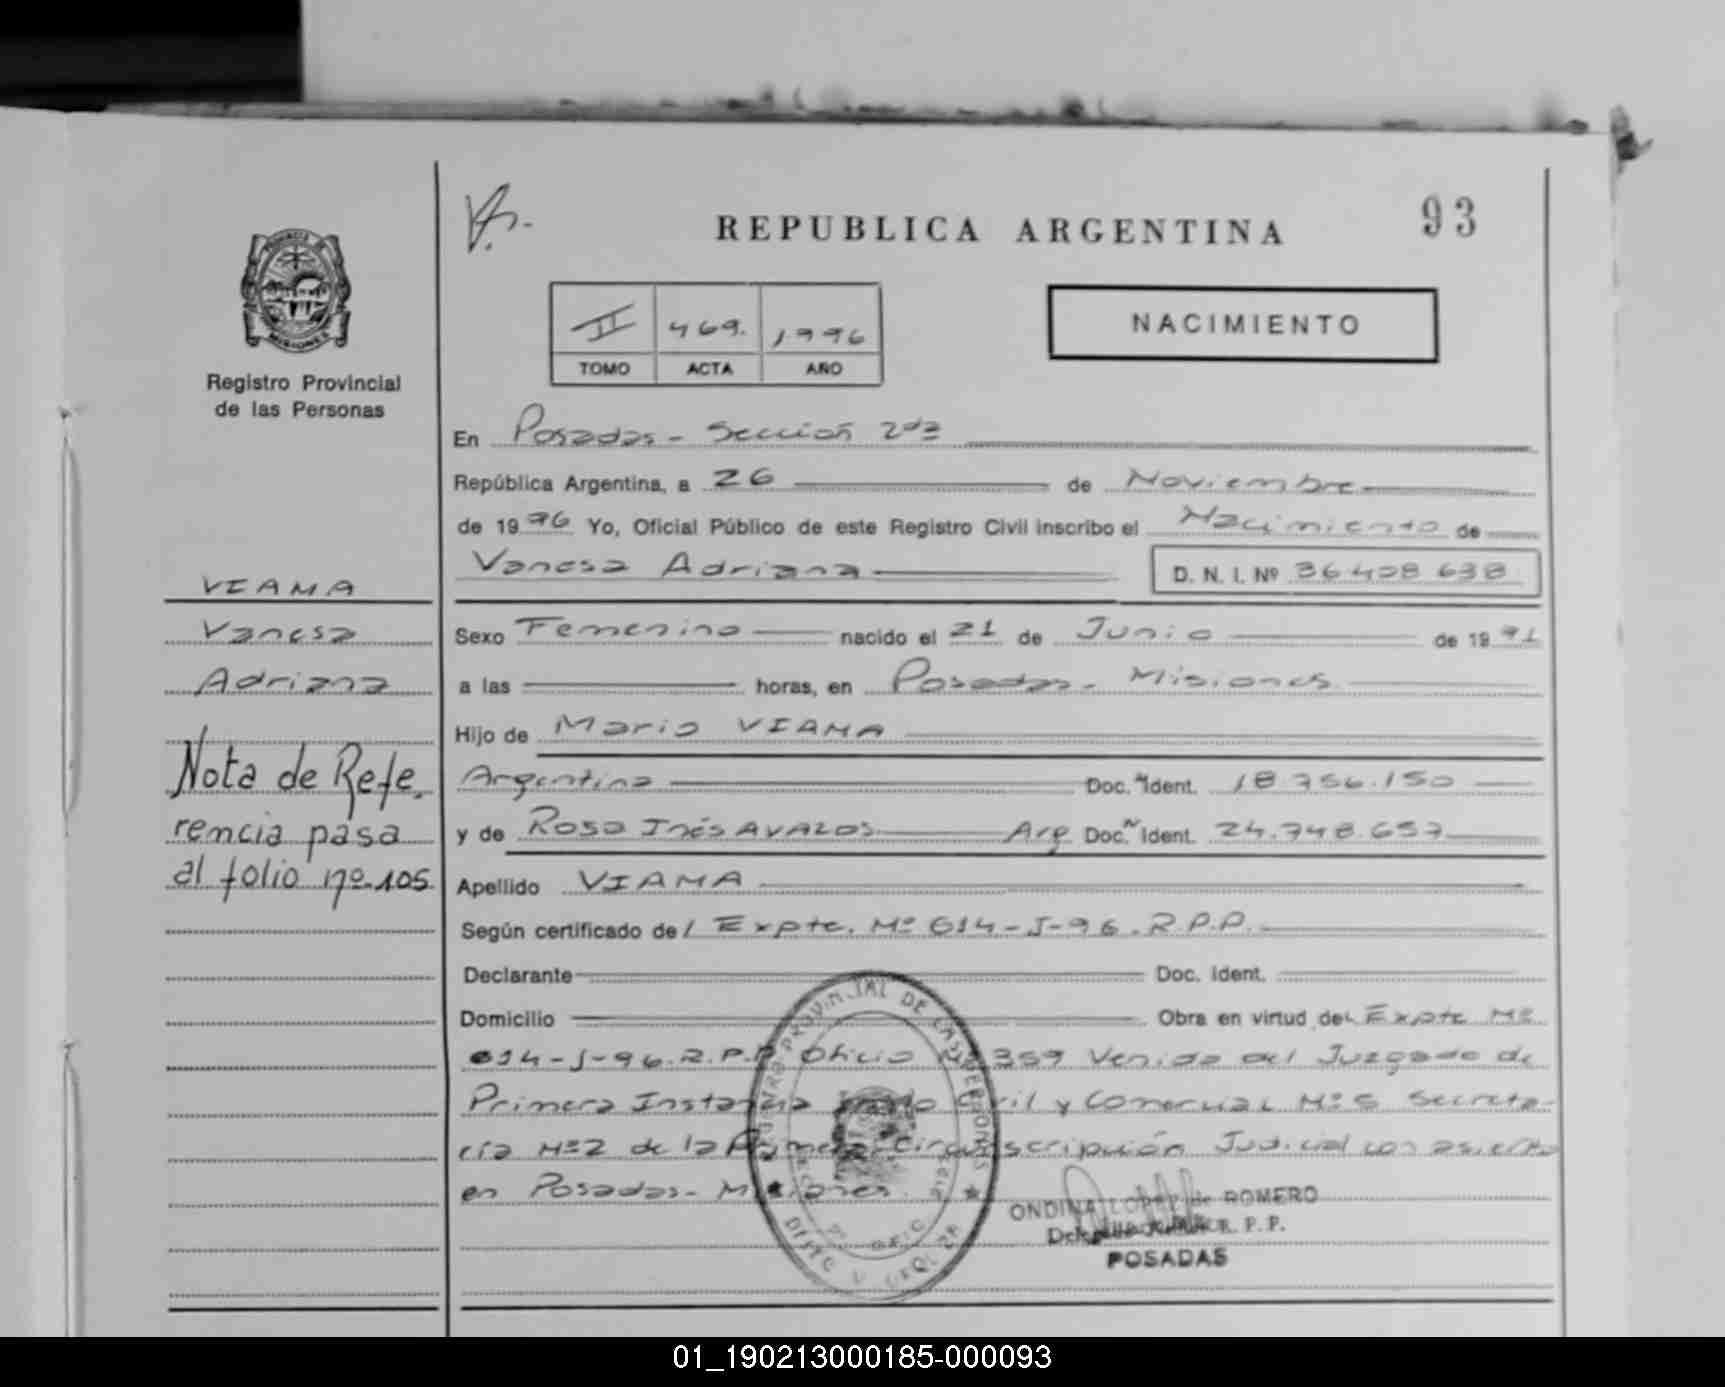 93
REPUBLICA ARGENTINA
PROVINCIA DE
MISIONES
Registro Provincial
de las Personas
II 469. 1996
TOMO ACTA AÑO
NACIMIENTO
En Posadas - Sección 2da
República Argentina, a 26 de Noviembre
de 1996 Yo, Oficial Público de este Registro Civil inscribo el Nacimiento de
Vanesa Adriana D. N. I. Nº 36.408.638
VIAMA
Vanesa
Adriana
Nota de Refe.
rencia pasa
al folio nº 105
Sexo Femenino nacido el 21 de Junio de 1991
a las horas, en Posadas - Misiones
Hijo de Mario VIAMA
Argentina Doc. Ident. 18.756.150
y de Rosa Inés AVALOS Arg Doc. Ident. 24.748.657
Apellido VIAMA
Según certificado de / Expte. Nº 614-J-96. R.P.P.
Declarante Doc. Ident.
Domicilio Obra en virtud del Expte Nº
614-J-96. R.P.P. Oficio 359 Venido del Juzgado de
Primera Instancia Civil y Comercial Nº 5 Secreta-
ría Nº 2 de la Primera Circunscripción Judicial con asiento
en Posadas - Misiones.
ONDINA LOPEZ de ROMERO
R. P. P.
POSADAS
01_190213000185-000093